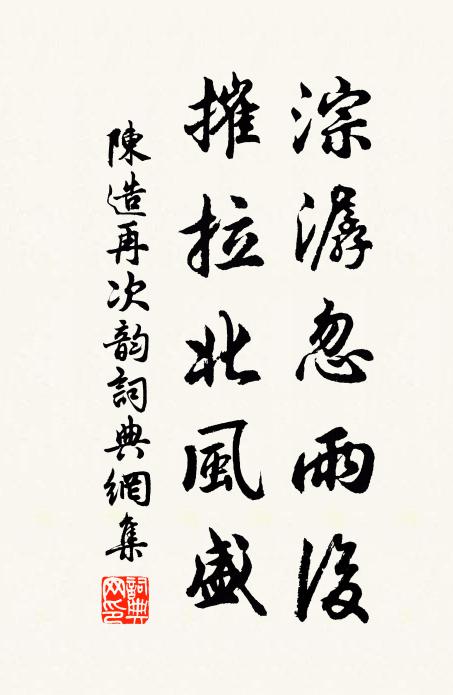 淙潺忽雨後
摧拉北風盛
陳造再次韵詞典網集
詞典网印